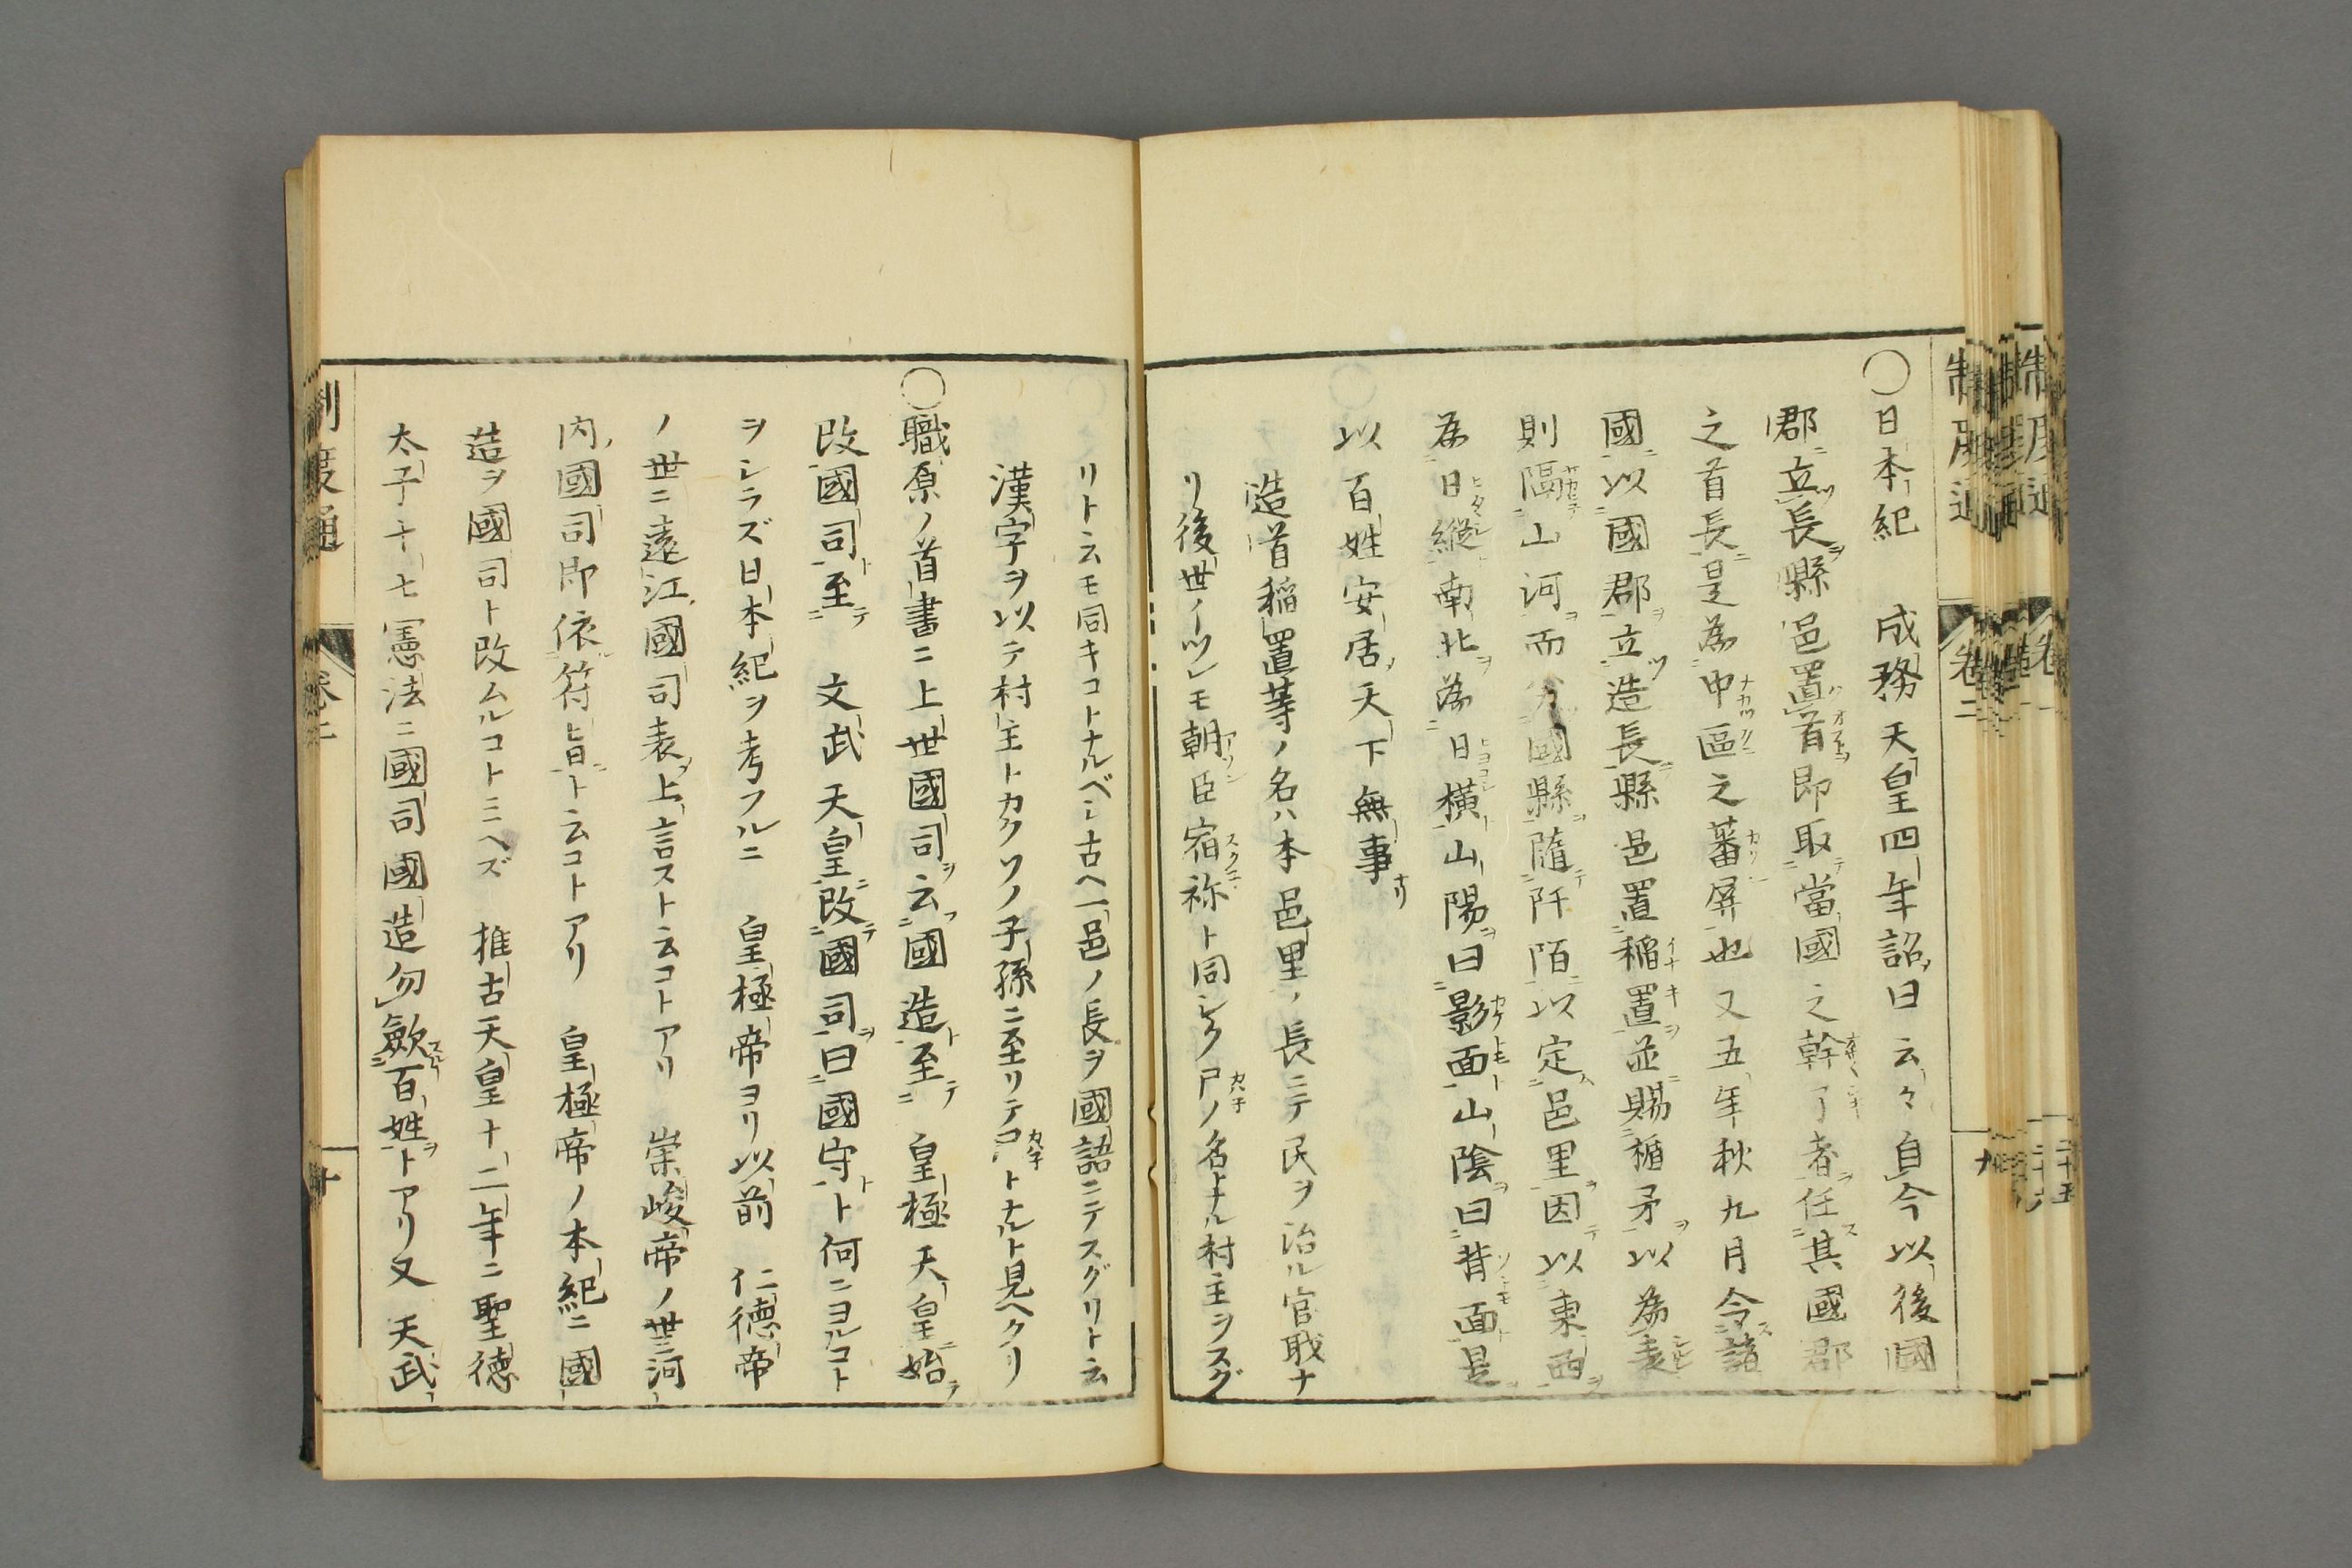 〇日本紀 成務天皇四年詔曰云々自今以後國
郡立長縣邑置首即取當國之幹了者任其國郡
之首長是為中區之蕃屏也又五年秋九月令諸
國以國郡立造長縣邑置稲置並賜楯矛以為表
則隔山河而分國縣隨阡陌以定邑里因以東西
為日縦南北為日横山陽曰影面山陰曰背面是
以百姓安居天下無事
造首稲置等ノ名ハ本邑里ノ長ニテ民ヲ治ル官職ナ
リ後世イツレモ朝臣宿祢ト同シク尸ノ名トナル村主ヲスグ
リト云モ同キコトナルベシ古ヘ一邑ノ長ヲ國語ニテスグリト云
漢字ヲ以テ村主トカクソノ子孫ニ至リテトナルト見ヘタリ
〇職原ノ首書ニ上世國司ヲ云國造至 皇極天皇始
改國司至 文武天皇改國司曰國守ト何ニヨルコト
ヲシラズ日本紀ヲ考フルニ 皇極帝ヨリ以前 仁德帝
ノ世ニ遠江國司表上言ストコトアリ 崇峻帝ノ世ニ河
内國司即依符旨ト云コトアリ 皇極帝ノ本紀ニ國
造ヲ國司ト改ムルコトミヘズ 推古天皇十二年ニ聖德
太子十七憲法ニ國司國造勿歛百姓トアリ又 天武
制度通 卷二 九
制度通 卷二 十